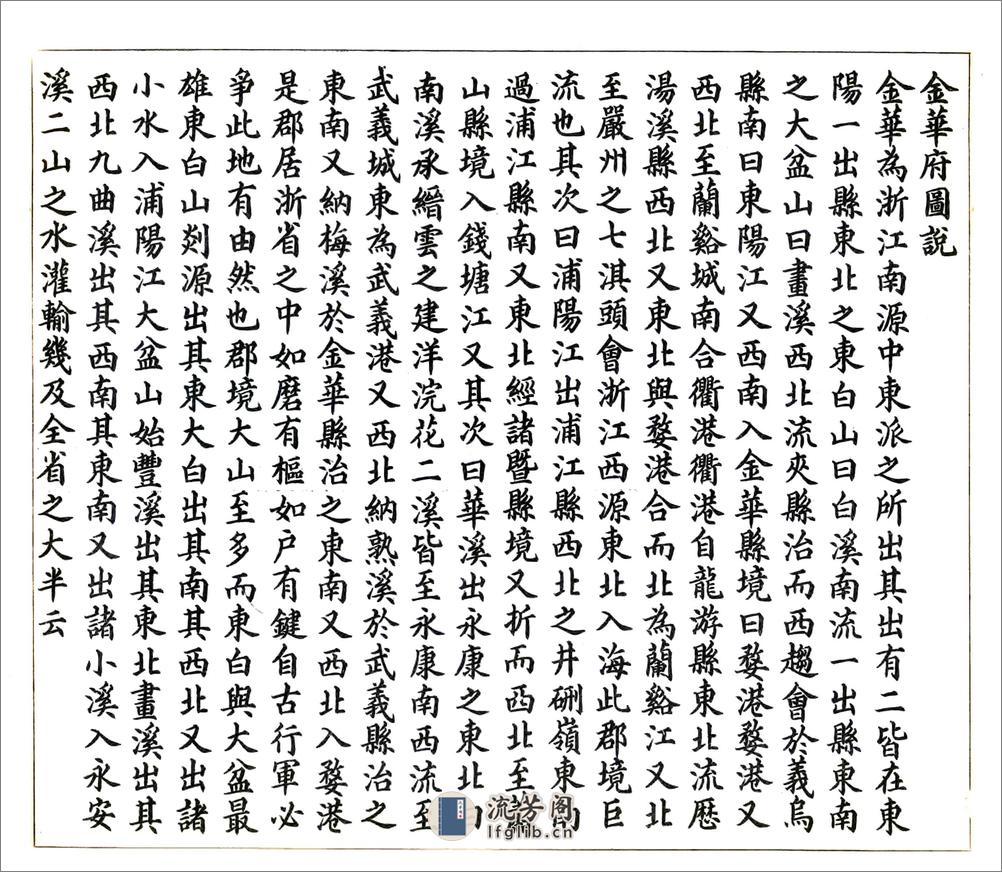 金華府圖說
金華為浙江南源中東派之所出其出有二皆在東
陽一出縣東北之東白山曰白溪南流一出縣東南
之大盆山曰畫溪西北流夾縣治而西趨會於義烏
縣南曰東陽江又西南入金華縣境曰婺港婺港又
西北至蘭谿城南合衢港衢港自龍游縣東北流歷
湯溪縣西北又東北與婺港合而北為蘭谿江又北
至嚴州之七淇頭會浙江西源東北入海此郡境巨
流也其次曰浦陽江出浦江縣西北之井硎嶺東
過浦江縣南又東北經諸暨縣境又折而西北至
山縣境入錢塘江又其次曰華溪出永康之東北
南溪承縉雲之建洋浣花二溪皆至永康南西流至
武義城東為武義港又西北納熟溪於武義縣治之
東南又納梅溪於金華縣治之東南又西北入婺港
是郡居浙省之中如磨有樞如户有鍵自古行軍必
爭此地有由然也郡境大山至多而東白與大盆最
雄東白山剡源出其東大白出其南其西北又出諸
小水入浦陽江大盆山始豐溪出其東北畫溪出其
西北九曲溪出其西南其東南又出諸小溪入永安
溪二山之水灌輸幾及全省之大半云
流芳阁
lfglib.cn